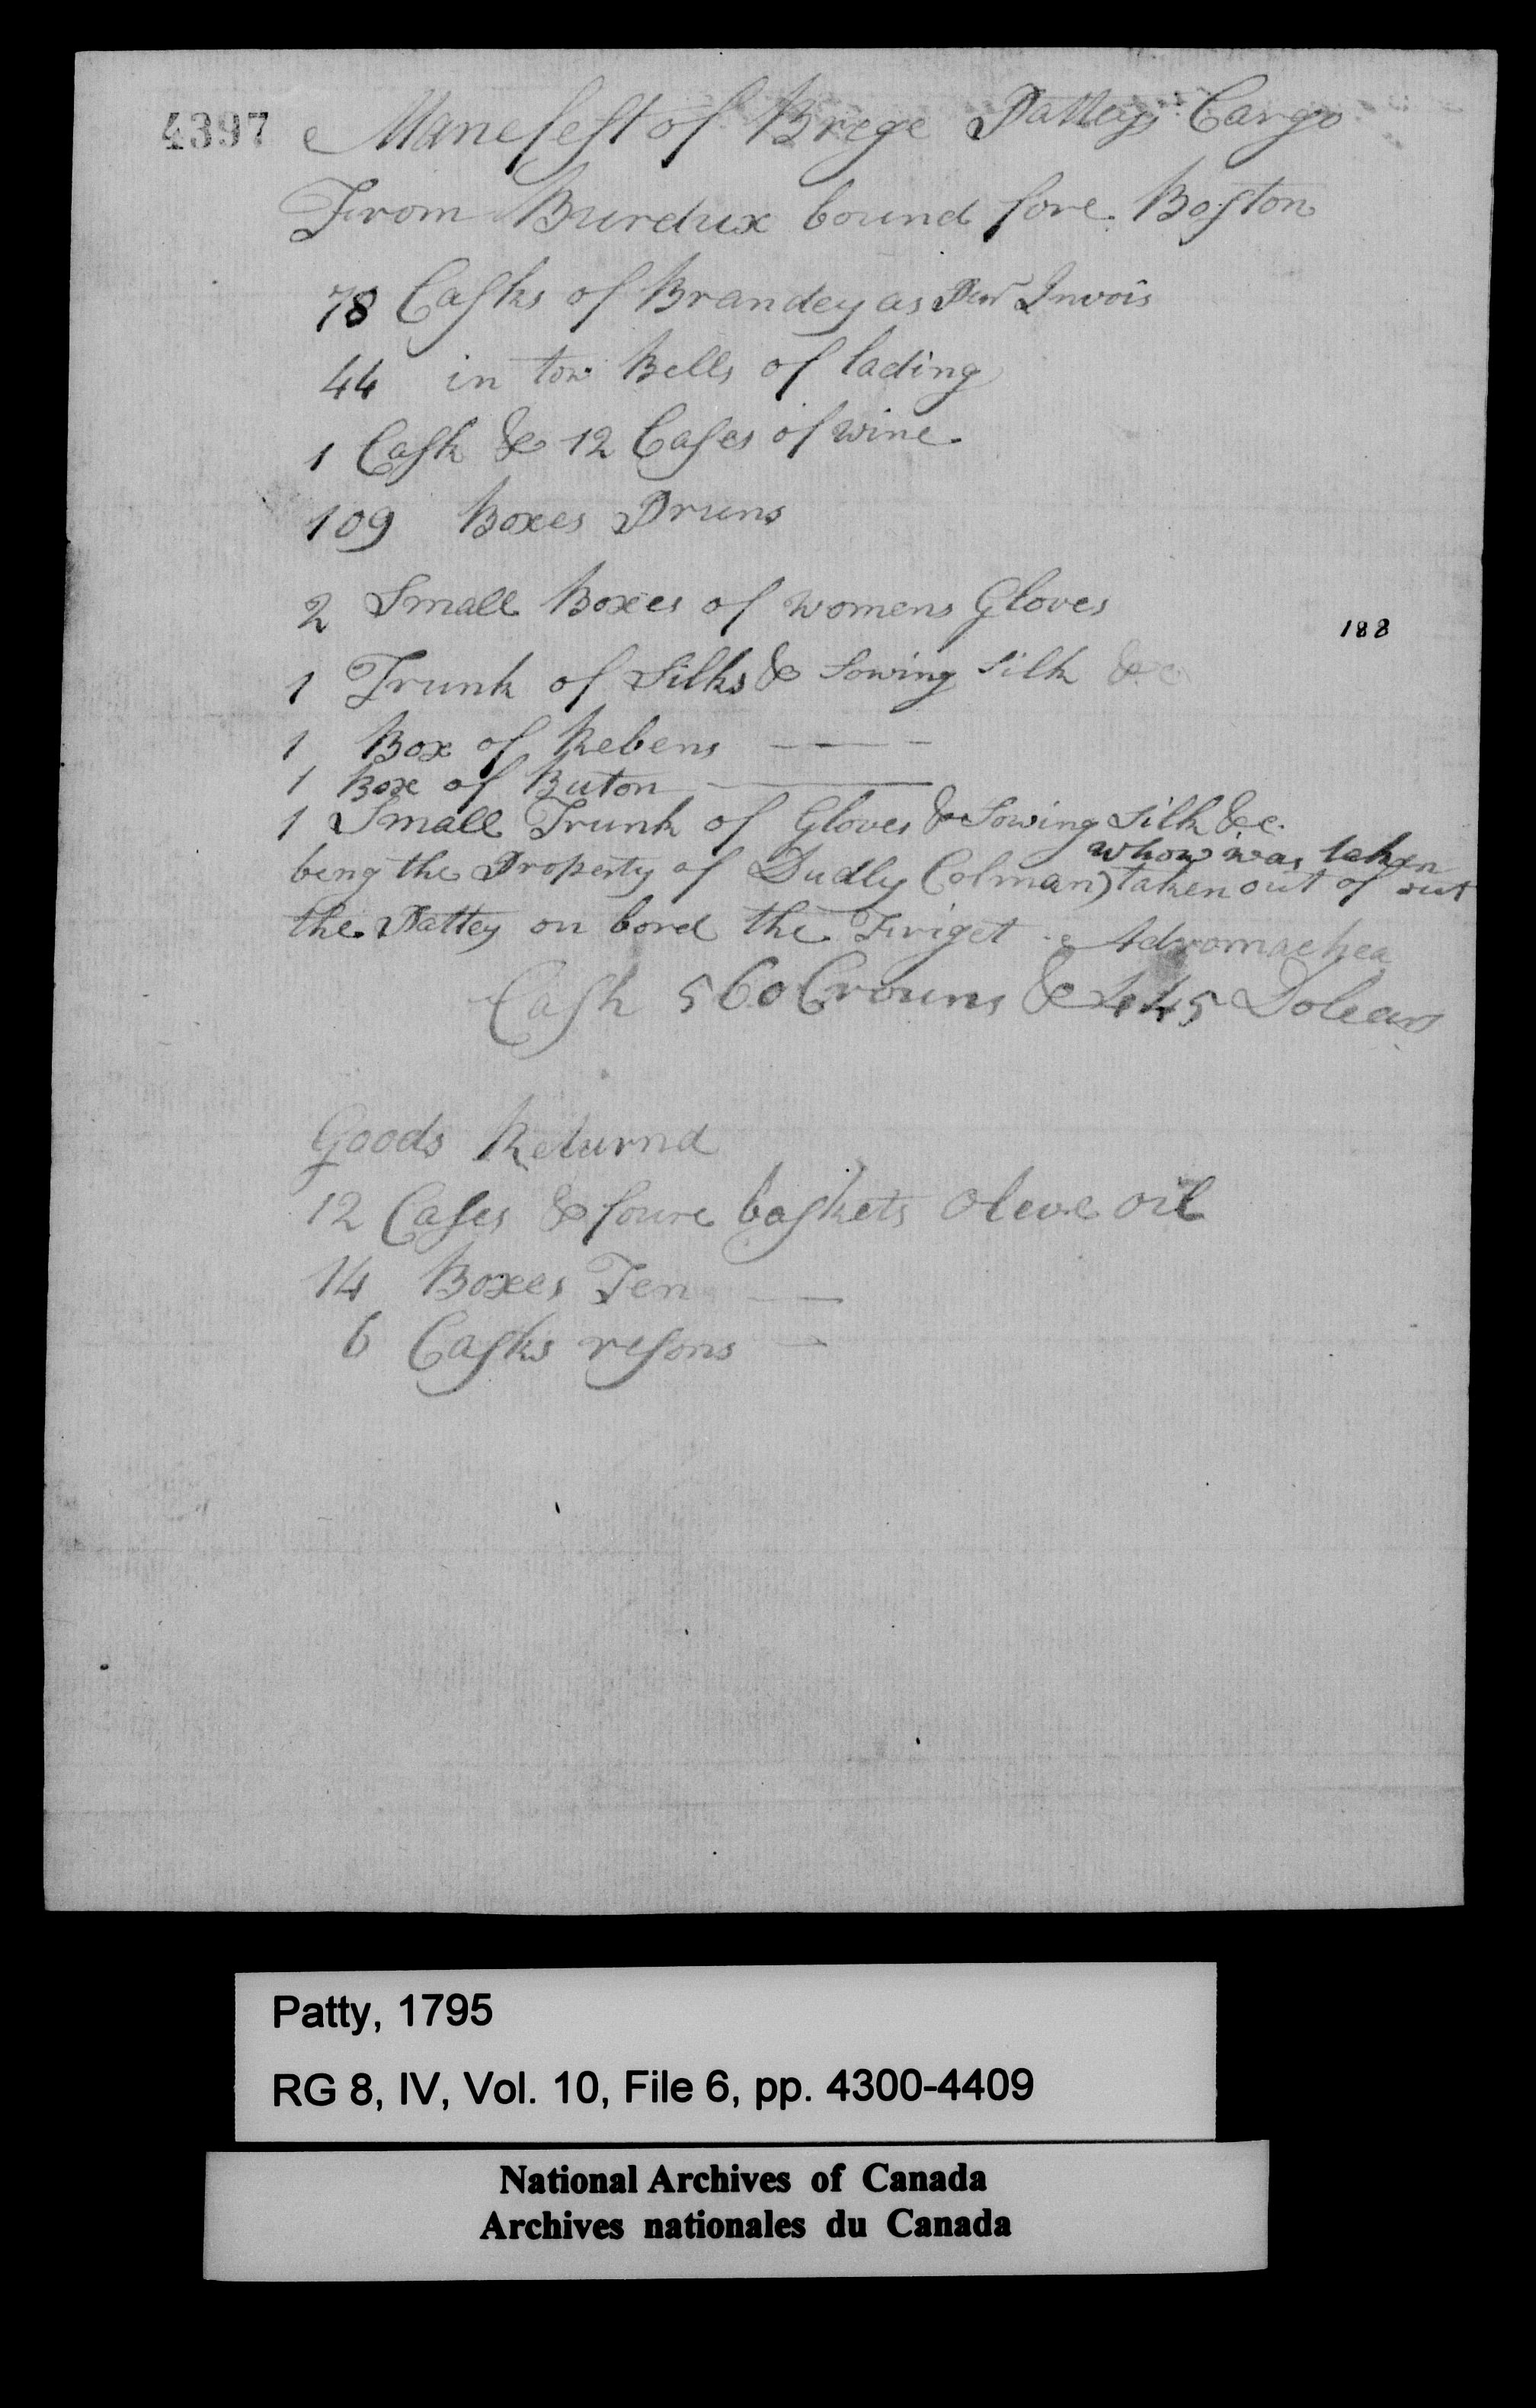 4397
Manefest of Brege Patteys Cargo
From Burdux bound fore Boston
78 Casks of Brandey as Per Invois
44 in tow Bells of lading
1 Cask & 12 Cases of wine
109 Boxes Pruns
2 Small Boxes of womens Gloves
188
1 Trunk of Silks & Sowing Silk &c
1 Box of Rebens
1 Box of Buton
1 Small Trunk of Gloves & Sowing Silk &c.
whow was taken
beng the Property of Dudly Colman) taken out of out
the Pattey on bord the Friget Adromachea
Cash 560 Crouns & 445 Dolears
Goods Returnd
12 Cases & foure baskets oleve oil
14 Boxes Ten
6 Casks resons
Patty, 1795
RG 8, IV, Vol. 10, File 6, pp. 4300-4409
National Archives of Canada
Archives nationales du Canada